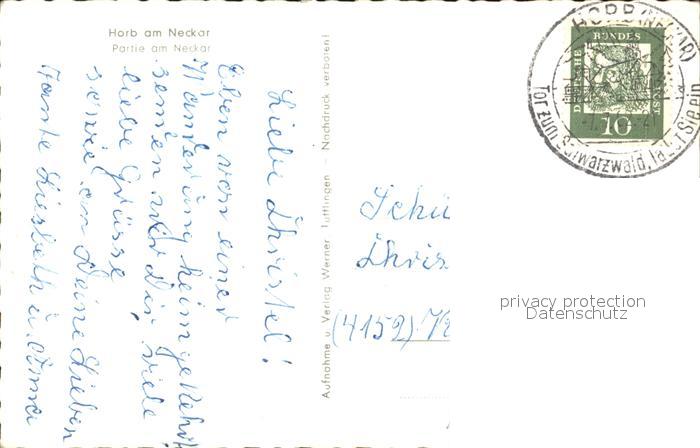 Horb am Neckar
Partie am Neckar
Liebe Christel!
Eben von einer
Wanderung heimgekehrt
senden wir Dir viele
liebe Grüsse
sowie an Deine Lieben
Tante Liesbeth u. Oma
Aufnahme u. Verlag Werner Tuttlingen - Nachdruck verboten!
HORB (NECKAR)
Tor zum Schwarzwald,
DEUTSCHE BUNDESPOST
10
Schü
Chris
(4152)
privacy protection
Datenschutz